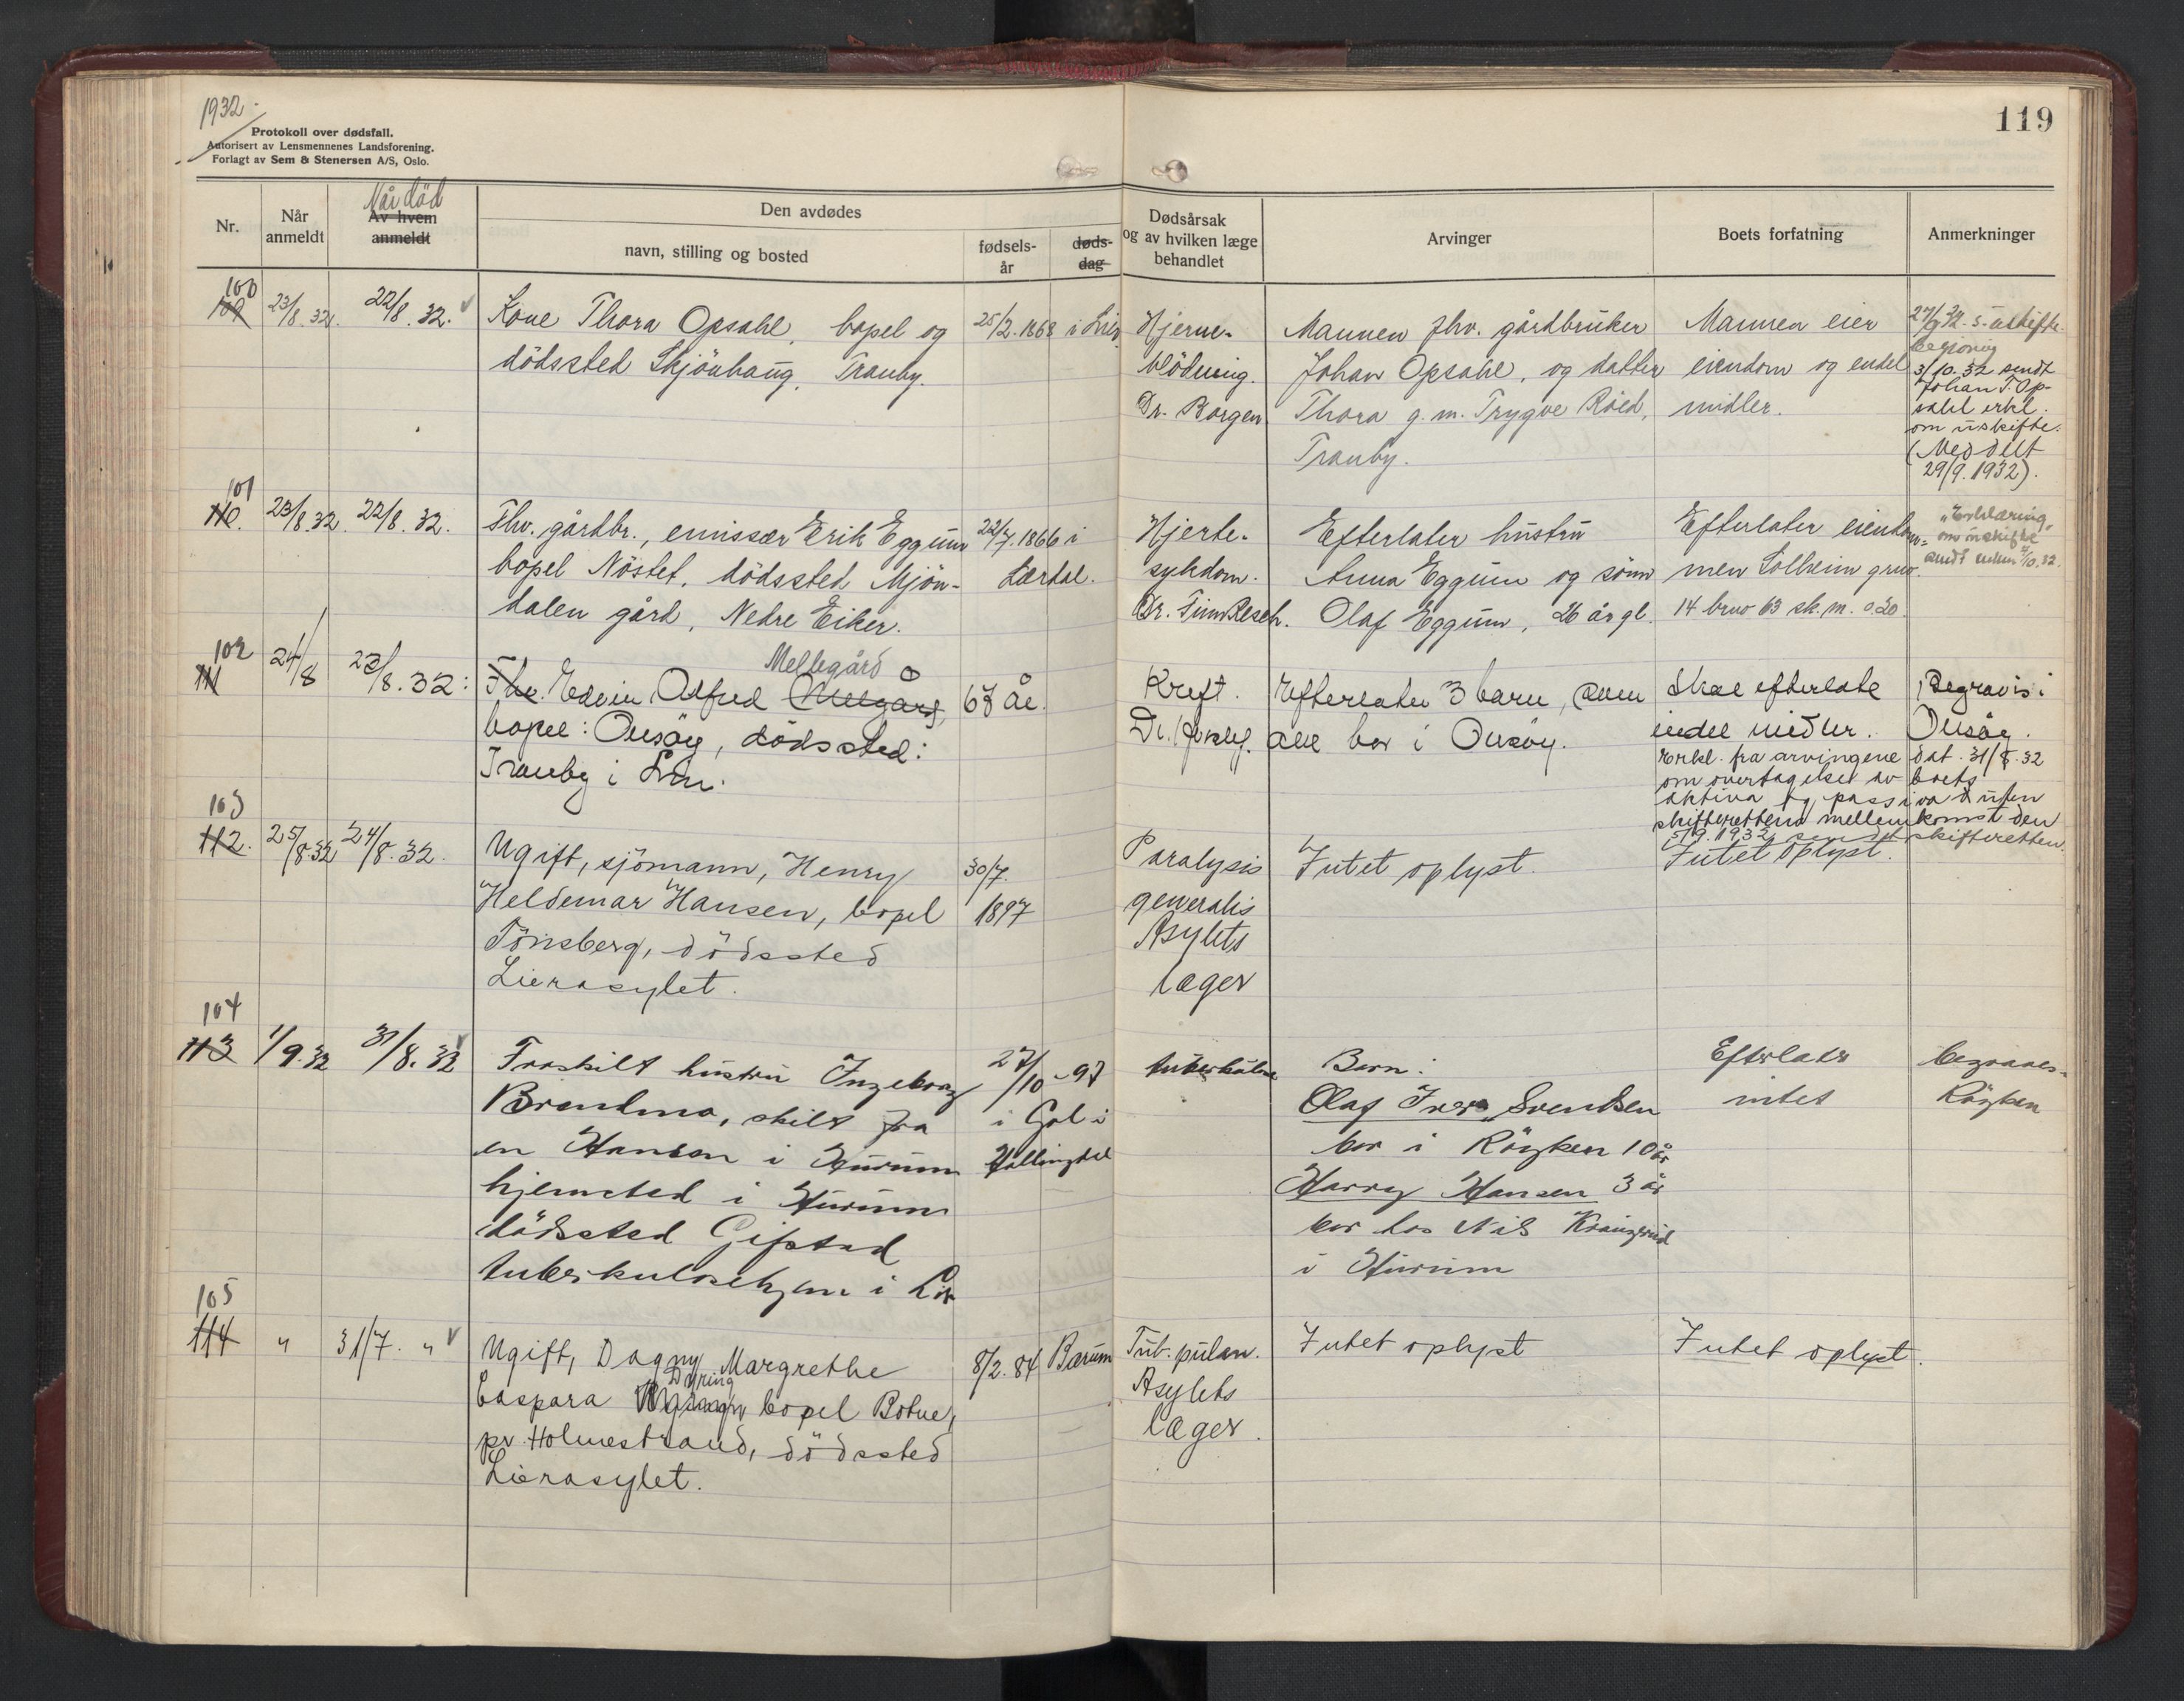 1932.
Protokoll over dødsfall.
Autorisert av Lensmennenes Landsforening.
Forlagt av Sem & Stenersen A/S, Oslo.
119
Nr.
Når anmeldt
Når död
Av hvem anmeldt
Den avdødes
navn, stilling og bosted
fødsels-
år
døds-
dag
Dødsårsak
og av hvilken læge
behandlet
Arvinger
Boets forfatning
Anmerkninger
100
109
23/8.32.
22/8.32.
Kone Thora Opsahl, bopel og
dödssted Skjönhaug, Tranby.
25/2.1868 i Lier
Hjerne-
blödning.
Dr. Borgen
Mannen fhv. gårdbruker
Johan Opsahl, og datter
Thora g.m. Trygve Röed,
Tranby.
Mannen eier
eiendom og endel
midler.
27/9.32. s. uskifte-
begjæring
3/10.32 sendt
Johan T. Op-
sahl erkl.
om uskifte.
(Meddelt
29/9.1932).
101
110.
23/8.32.
22/8.32.
Fhv. gårdbr., emissær Erik Eggum
bopel Nöstet, dödssted Mjön-
dalen gård, Nedre Eiker.
22/7.1866 i
Lærdal.
Hjerte-
sykdom.
Dr.
Efterlater hustru
Anna Eggum og sönn
Olaf Eggum, 26 år gl.
Efterlater eiendom-
men Solheim grno.
14 brno 63 sk.m. 0.20.
"Erklæring"
om uskifte
sendt enken /10.32.
102
111
24/8
23/8.32.
Mellegård
Fhv. Edvin Alfred Melgård,
bopel: Onsöy, dödssted:
Tranby i Lier.
67 år.
Kreft.
Dr.
Efterlater 3 barn, som
alle bor i Onsöy.
Skal efterlate
endel midler.
Begraves i
Onsöy.
Erkl. fra arvingene dat. 31/8.32
om overtagelse av boets
aktiva og passiva uten
skifterettens mellemkomst den
5/9.1932 sendt skifteretten.
103
112.
25/8.32
24/8.32.
Ugift, sjömann, Henry
Heldemar Hansen, bopel
Tönsberg, dödssted
Lierasylet.
30/7.
1897
Paralysis
generalis
Asylets
læger
Intet oplyst.
Intet oplyst.
104
113
1/9.32
31/8.32
Fraskilt hustru Ingeborg
Bramlmo, skilt fra
en Hansen i Hurum
hjemsted i Hurum
dödssted Gifstad
tuberkulosehjem i Lier
27/10-97
i Gol i
Hallingdal
tuberkulose
Barn:
Olaf Iver Svendsen
bor i Röyken 10 år
Harry Hansen 3 år
bor hos Nils
i Hurum
Efterlater
intet
begraves-
Röyken
105
114
"
31/7. "
Ugift, Dagny Margrethe
Dyring
Caspara bopel Botne,
pr. Holmestrand, dödssted
Lierasylet.
8/2.84
Bærum
Tub. pulm.
Asylets
læger.
Intet oplyst
Intet oplyst.